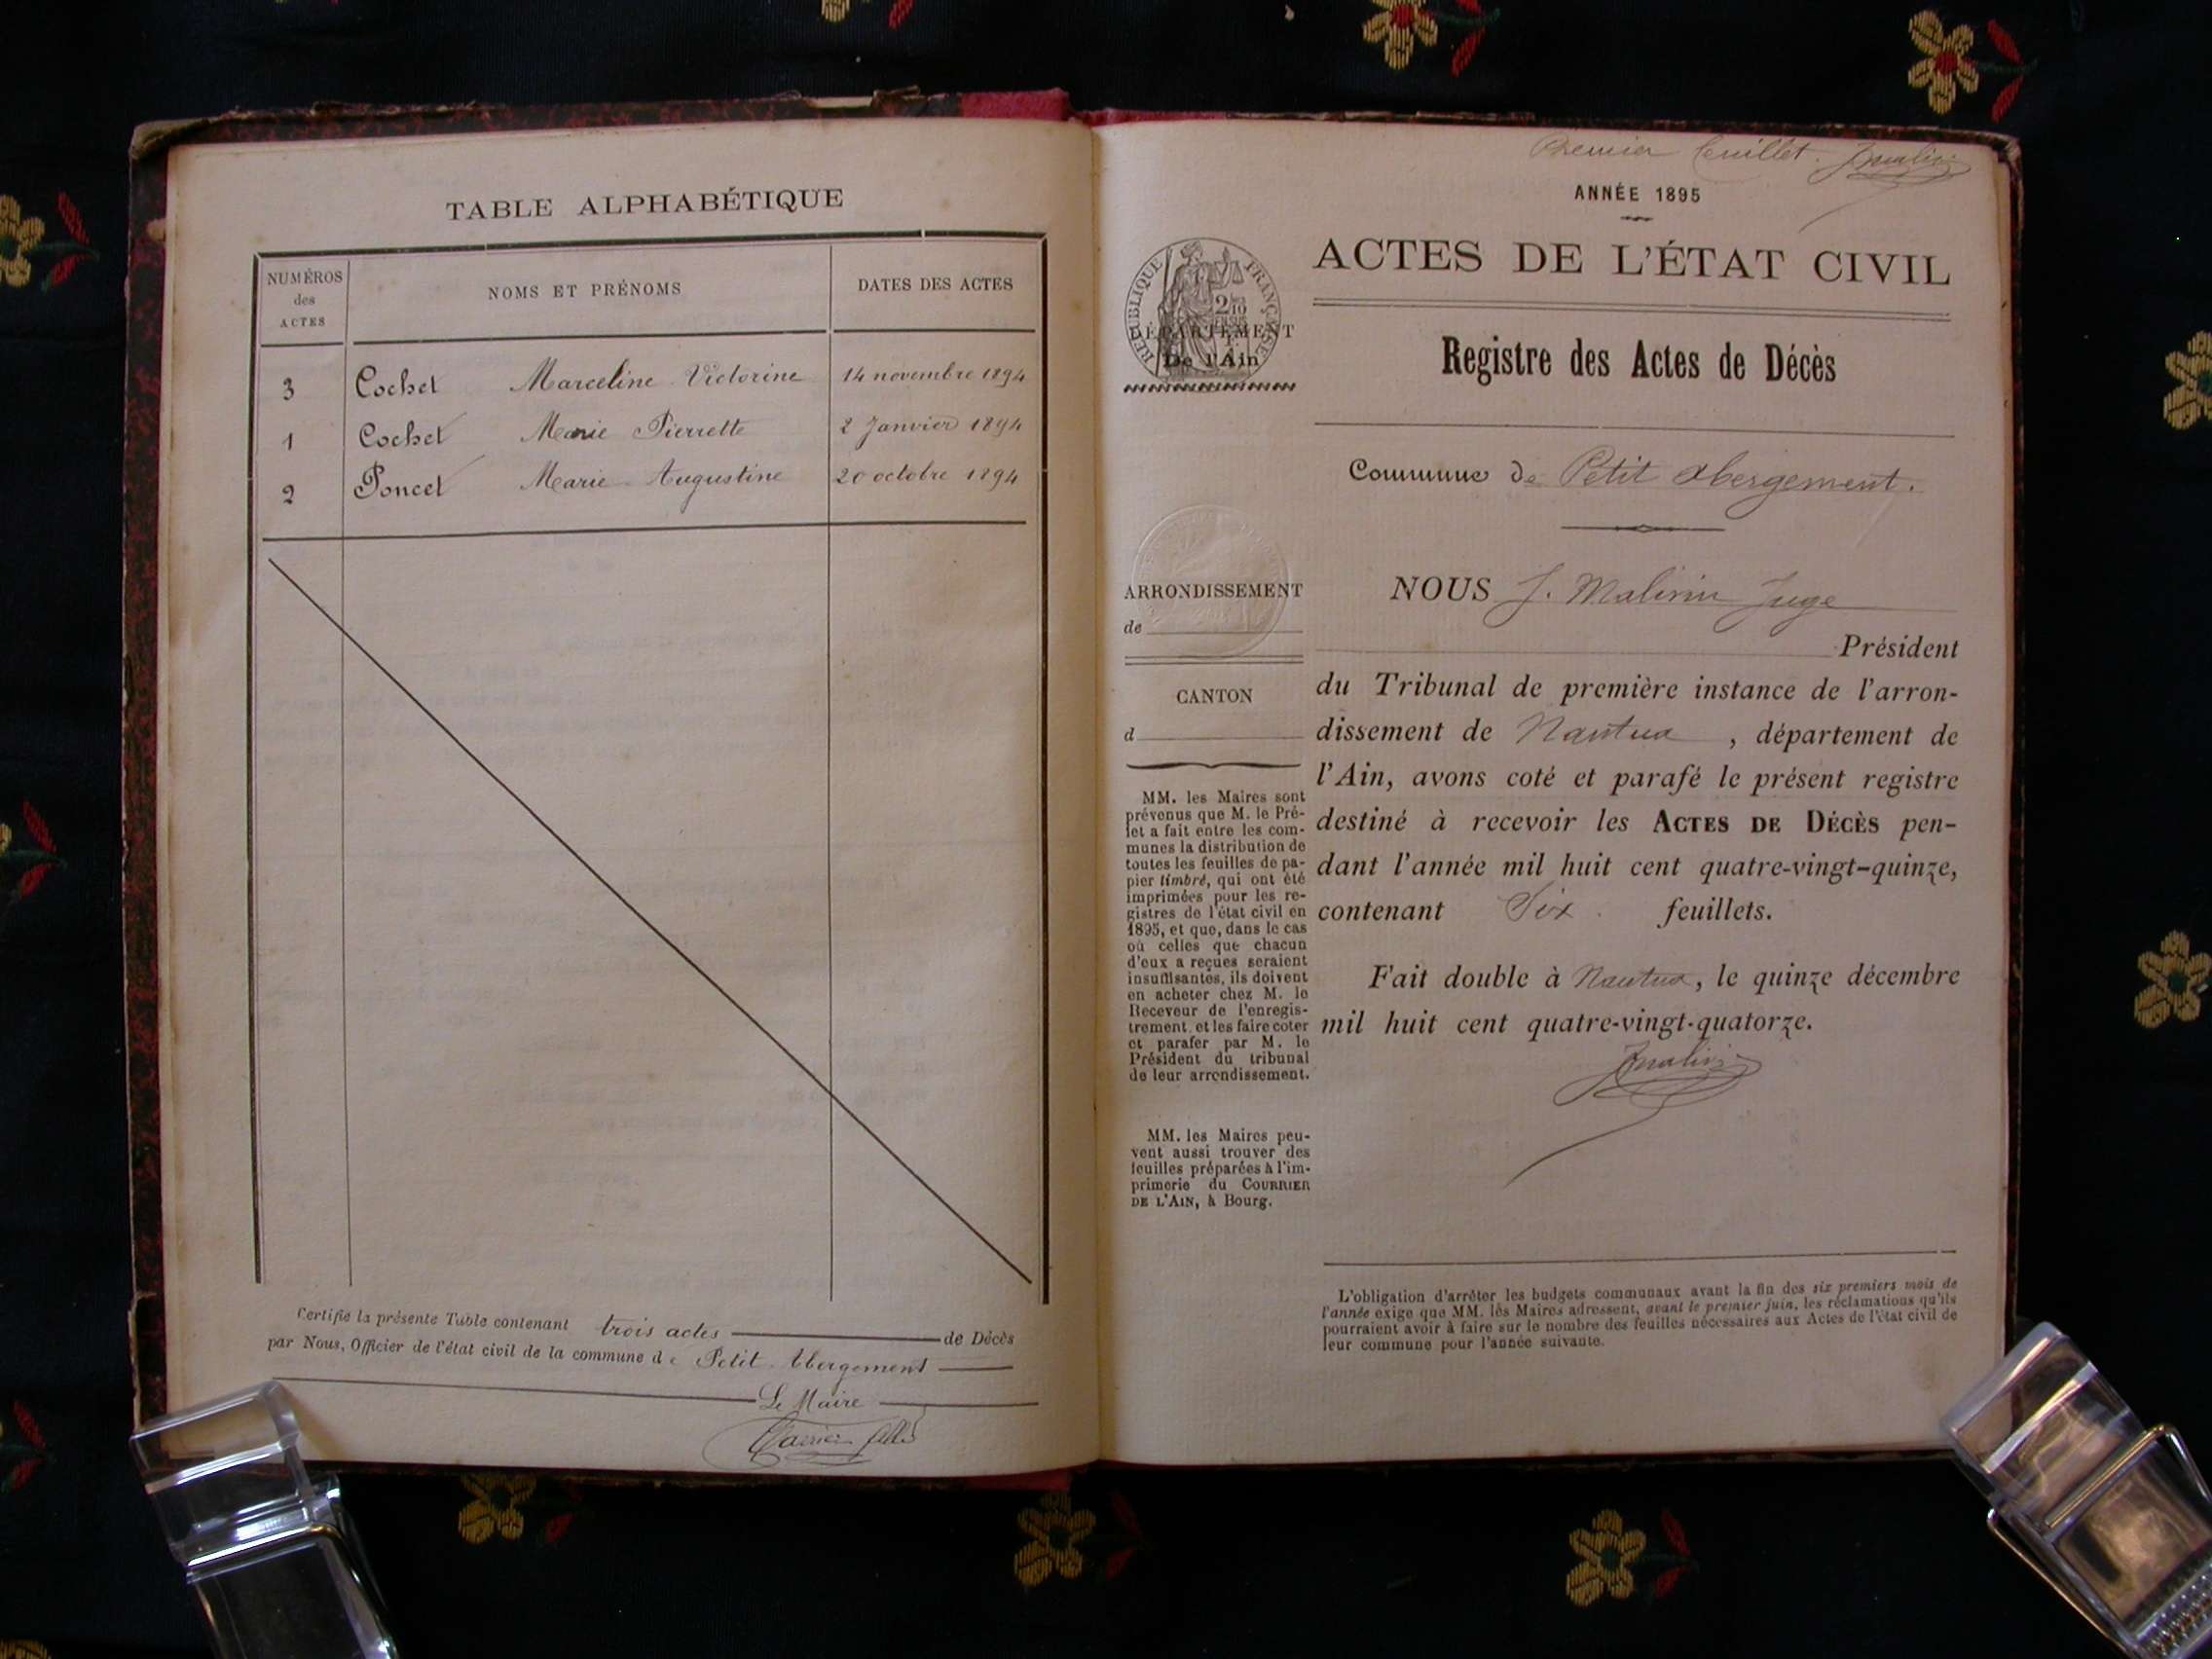 TABLE ALPHABÉTIQUE
NUMÉROS
des
ACTES
NOMS ET PRÉNOMS
DATES DES ACTES
3 Cochet Marceline Victorine 14 novembre 1894
1 Cochet Marie Pierrette 2 Janvier 1894
2 Poncet Marie Augustine 20 octobre 1894
Certifié la présente Table contenant trois actes de Décès
par Nous, Officier de l'état civil de la commune de Petit Abergement
Le Maire
Premier feuillet.
ANNÉE 1895
ACTES DE L'ÉTAT CIVIL
RÉPUBLIQUE FRANÇAISE
DÉPARTEMENT
De l'Ain
Registre des Actes de Décès
Commune de Petit Abergement.
ARRONDISSEMENT
de
CANTON
d
MM. les Maires sont
prévenus que M. le Pré-
fet a fait entre les com-
munes la distribution de
toutes les feuilles de pa-
pier timbré, qui ont été
imprimées pour les re-
gistres de l'état civil en
1895, et que, dans le cas
où celles que chacun
d'eux a reçues seraient
insuffisantes, ils doivent
en acheter chez M. le
Receveur de l'enregis-
trement, et les faire coter
et parafer par M. le
Président du tribunal
de leur arrondissement.
MM. les Maires peu-
vent aussi trouver des
feuilles préparées à l'im-
primerie du COURRIER
DE L'AIN, à Bourg.
NOUS J. Juge
Président
du Tribunal de première instance de l'arron-
dissement de Nantua, département de
l'Ain, avons coté et parafé le présent registre
destiné à recevoir les ACTES DE DÉCÈS pen-
dant l'année mil huit cent quatre-vingt-quinze,
contenant Six feuillets.
Fait double à Nantua, le quinze décembre
mil huit cent quatre-vingt-quatorze.
L'obligation d'arrêter les budgets communaux avant la fin des six premiers mois de
l'année exige que MM. les Maires adressent, avant le premier juin, les réclamations qu'ils
pourraient avoir à faire sur le nombre des feuilles nécessaires aux Actes de l'état civil de
leur commune pour l'année suivante.